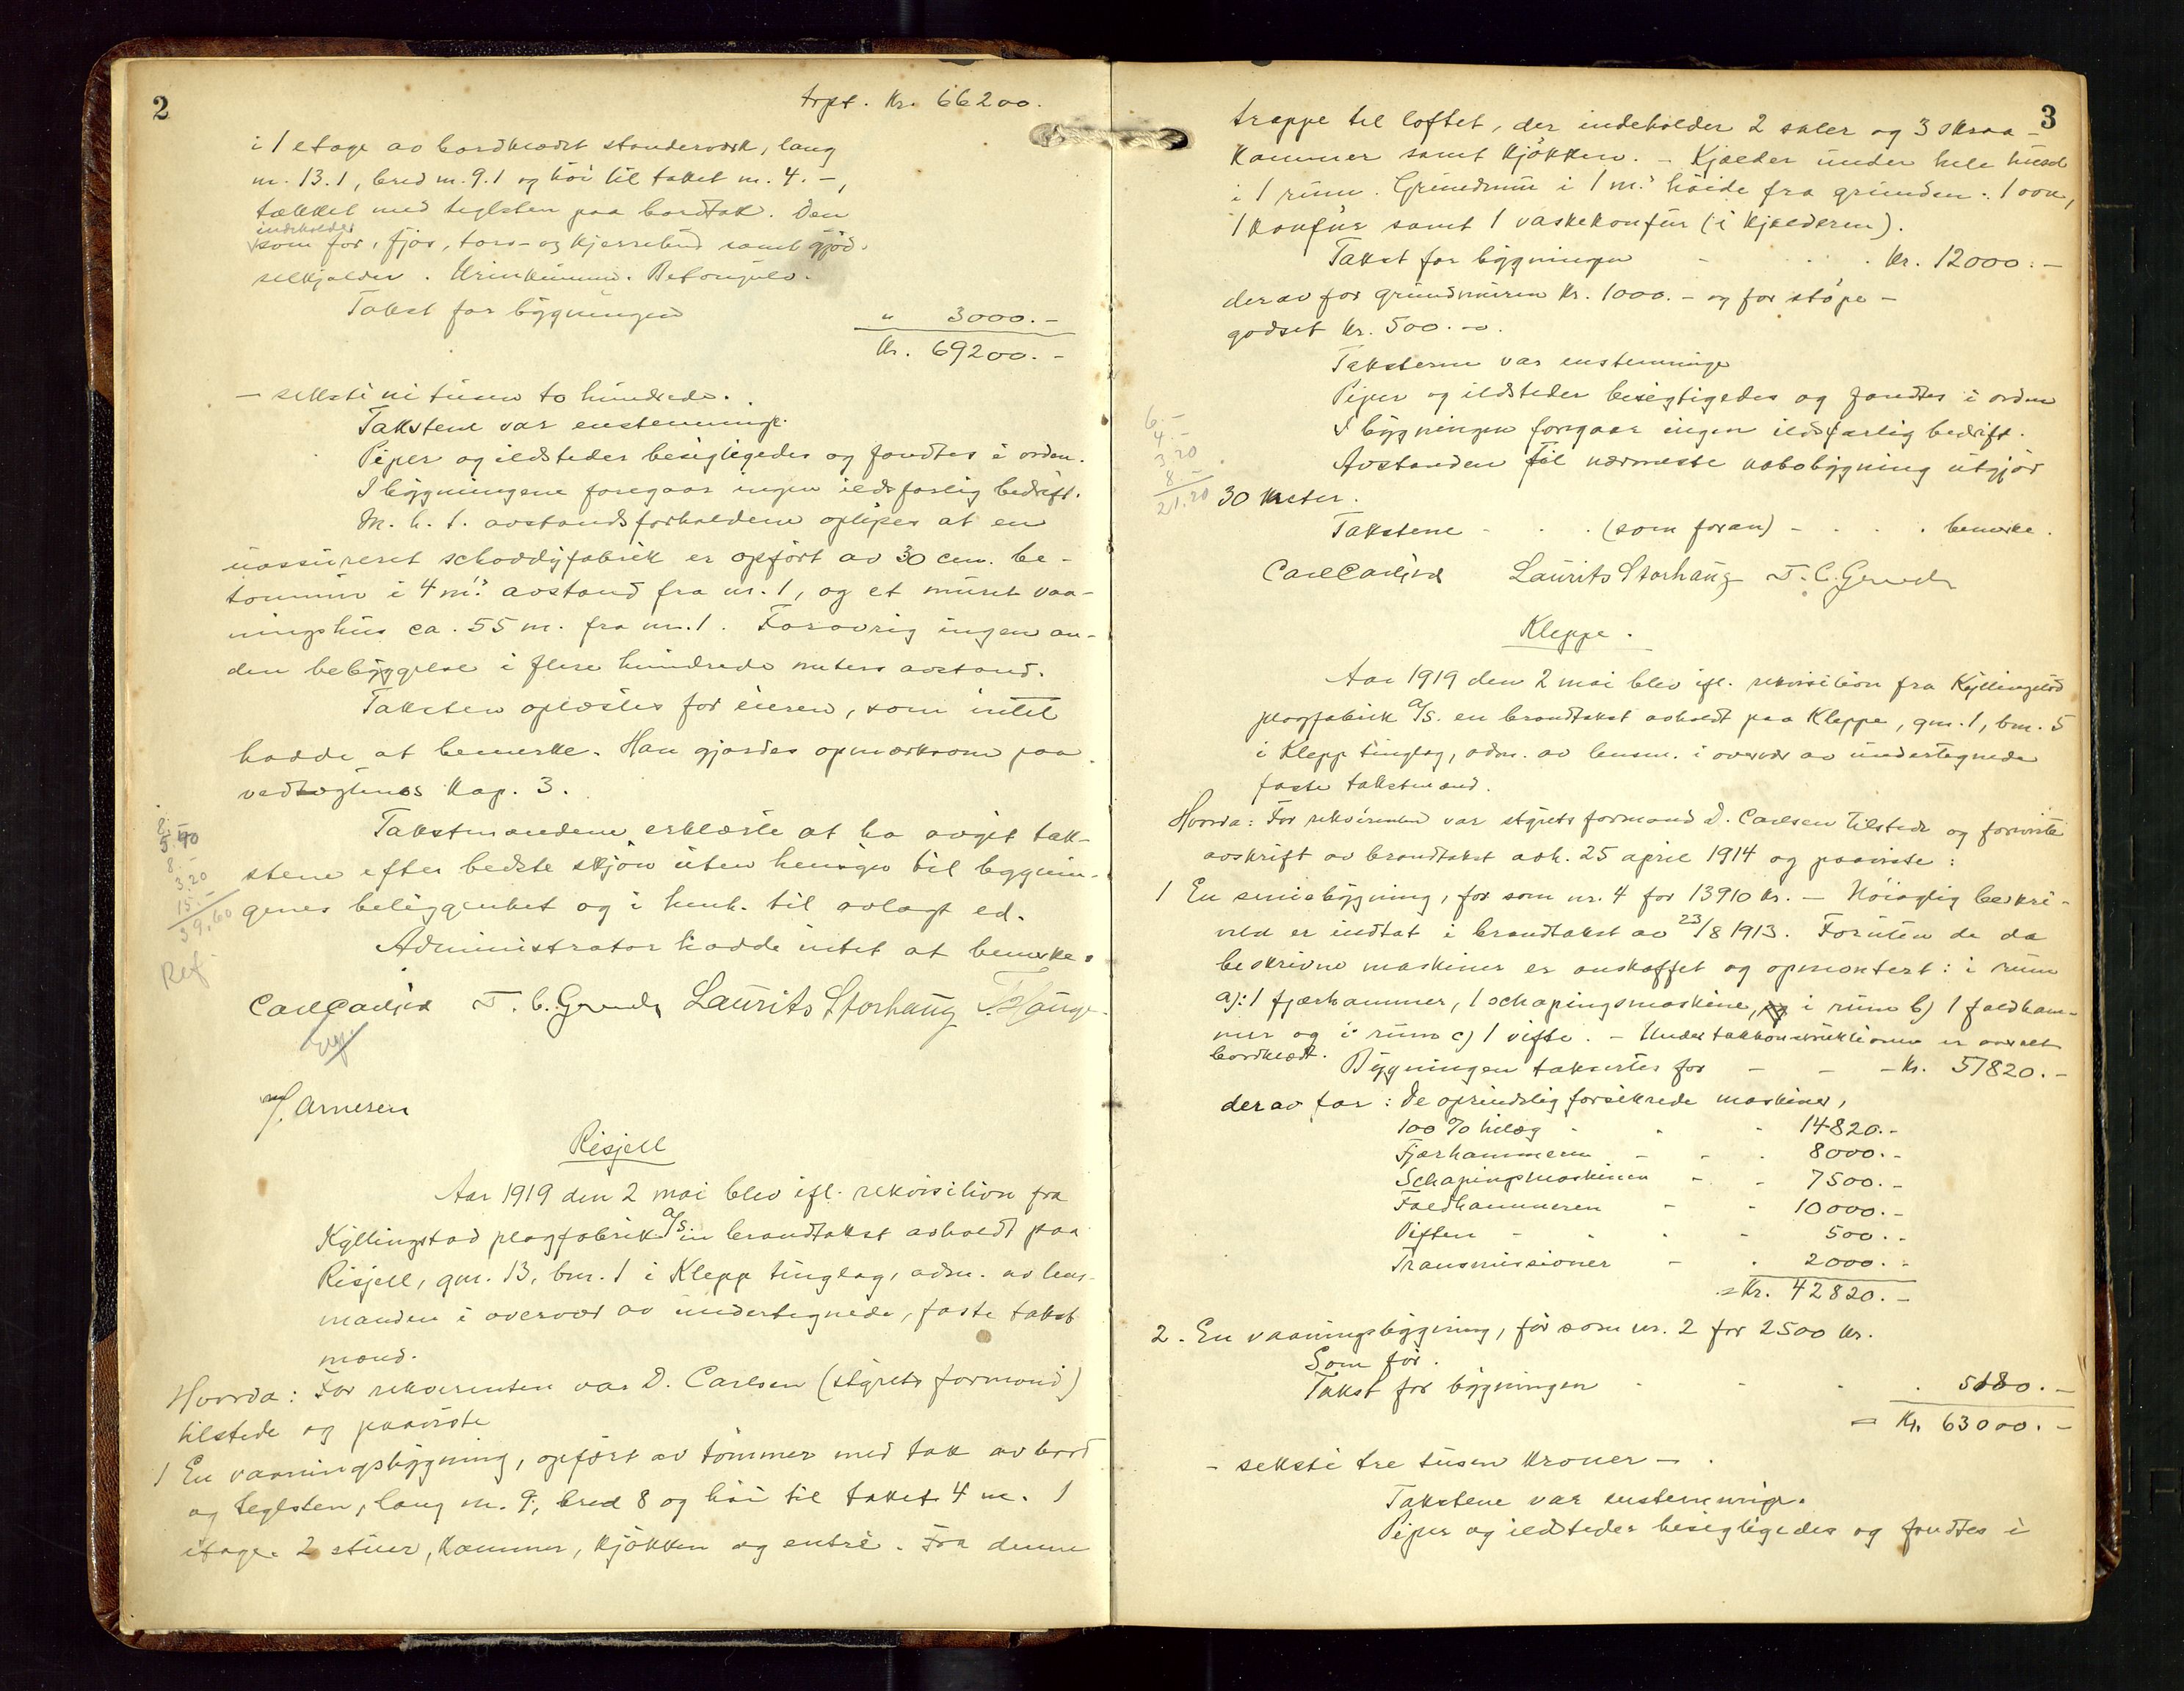 2
trpt. Kr. 66200.
i 1 etage av bordklædt stenderverk, lang
m. 13.1, bred m. 9.1 og höi til taket m. 4.-,
tækket med teglsten paa bordtak. Den
indeholder
som för, fjös, torv- og kjerrebud samt gjöd-
selkjelder. Urinkumme. Betongulv.
Takst for bygningen " 3000.-
Kr. 69200.-
- seksti ni tusen to hundrede.
Takstene var enstemmige.
Piper og ildsteder besigtigedes og fandtes i orden.
I bygningene foregaar ingen ildsfarlig bedrift.
M. h. t. avstandsforholdene oplyses at en
uassureret schoddyfabrik er opfört av 30 cm. be-
tonmur i 4 m.s avstand fra nr. 1, og et muret vaa-
ningshus ca. 55 m. fra nr. 1. Forövrig ingen an-
den bebyggelse i flere hundrede meters avstand.
Taksten oplæstes for eieren, som intet
hadde at bemerke. Han gjordes opmerksom paa
vedtægtenes kap. 3.
Takstmændene erklærte at ha avgit tak-
stene efter bedste skjön uten hensyn til bygnin-
genes beliggenhet og i henh. til avlagt ed.
Administrator hadde intet at bemerke.
8.-
5.40
8.-
3.20
15.-
39,60
Ref.
Carl Carlsen T. C. Grude Laurits Storhaug T. Hauge
J. Arnesen
Risjell
Aar 1919 den 2 mai blev ifl. rekvisition fra
Kyllingstad plogfabrik A/S. en brandtakst avholdt paa
Risjell, gnr. 13, bnr. 1 i Klepp tinglag, adm. av lens-
manden i overvær av undertegnede, faste takst
mænd.
Hvorda: For rekvirenten var D. Carlsen (styrets formand)
tilstede og paaviste
1 En vaaningsbygning, opfört av tömmer med tak av bord
og teglsten, lang m. 9, bred 8 og höi til taket 4 m. 1
etage. 2 stuer, kammer, kjökken og entré. Fra denne
3
trappe til loftet, der indeholder 2 saler og 3 skraa-
kammer samt kjökken. - Kjælder under hele huset
i 1 rum. Grundmur i 1 m.s höide fra grunden. 1 ovn,
1 konfur samt 1 vaskekonfur (i kjælderen).
Takst for bygningen - - - Kr. 12000.-
derav for grundmuren Kr. 1000.- og for stöpe-
godset Kr. 500.-.
Taksterne var enstemmige
Piper og ildsteder besigtigedes og fandtes i orden
I bygningen foregaar ingen ildsfarlig bedrift.
Avstanden til nærmeste nabobygning utgjör
30 meter.
6.-
4.-
3.20
8.-
21.20
Takstene - - - (som foran) - - - - bemerke.
Carl Carlsen Laurits Storhaug T. C. Grude
Kleppe.
Aar 1919 den 2 mai blev ifl. rekvisition fra Kyllingstad
plogfabrik A/S. en brandtakst avholdt paa Kleppe, gnr. 1, bnr. 5
i Klepp tinglag, adm. av lensm. i overvær av undertegnede
faste takstmænd.
Hvorda: For rekvirenten var styrets formand D. Carlsen tilstede og foreviste
avskrift av brandtakst avh. 25 april 1914 og paaviste:
1 En smiebygning, för som nr. 4 for 13910 kr. - Nöiagtig beskri-
velse er indtat i brandtakst av 23/8 1913. Foruten de da
beskrivne maskiner er anskaffet og opmontert: i rum
a): 1 fjærhammer, 1 schapingsmaskine, i rum b) 1 faldham-
mer og i rum c) 1 vifte. - Under takkonstruktionen er overalt
bordklædt. Bygningen taksertes for - - - Kr. 57820.-
derav for: De oprindelig forsikrede maskiner,
100 % tillæg - - - 14820.-
Fjærhammeren - - - 8000.-
Schapingsmaskinen - - 7500.-
Faldhammeren - - 10000.-
Viften - - - - 500.-
Transmissioner - - 2000.-
= Kr. 42820.-
2. En vaaningsbygning, för som nr. 2 for 2500 kr.
Som för.
Takst for bygningen - - - - 5180.-
= Kr. 63000.-
- seksti tre tusen kroner -.
Takstene var enstemmige.
Piper og ildsteder besigtigedes og fandtes i